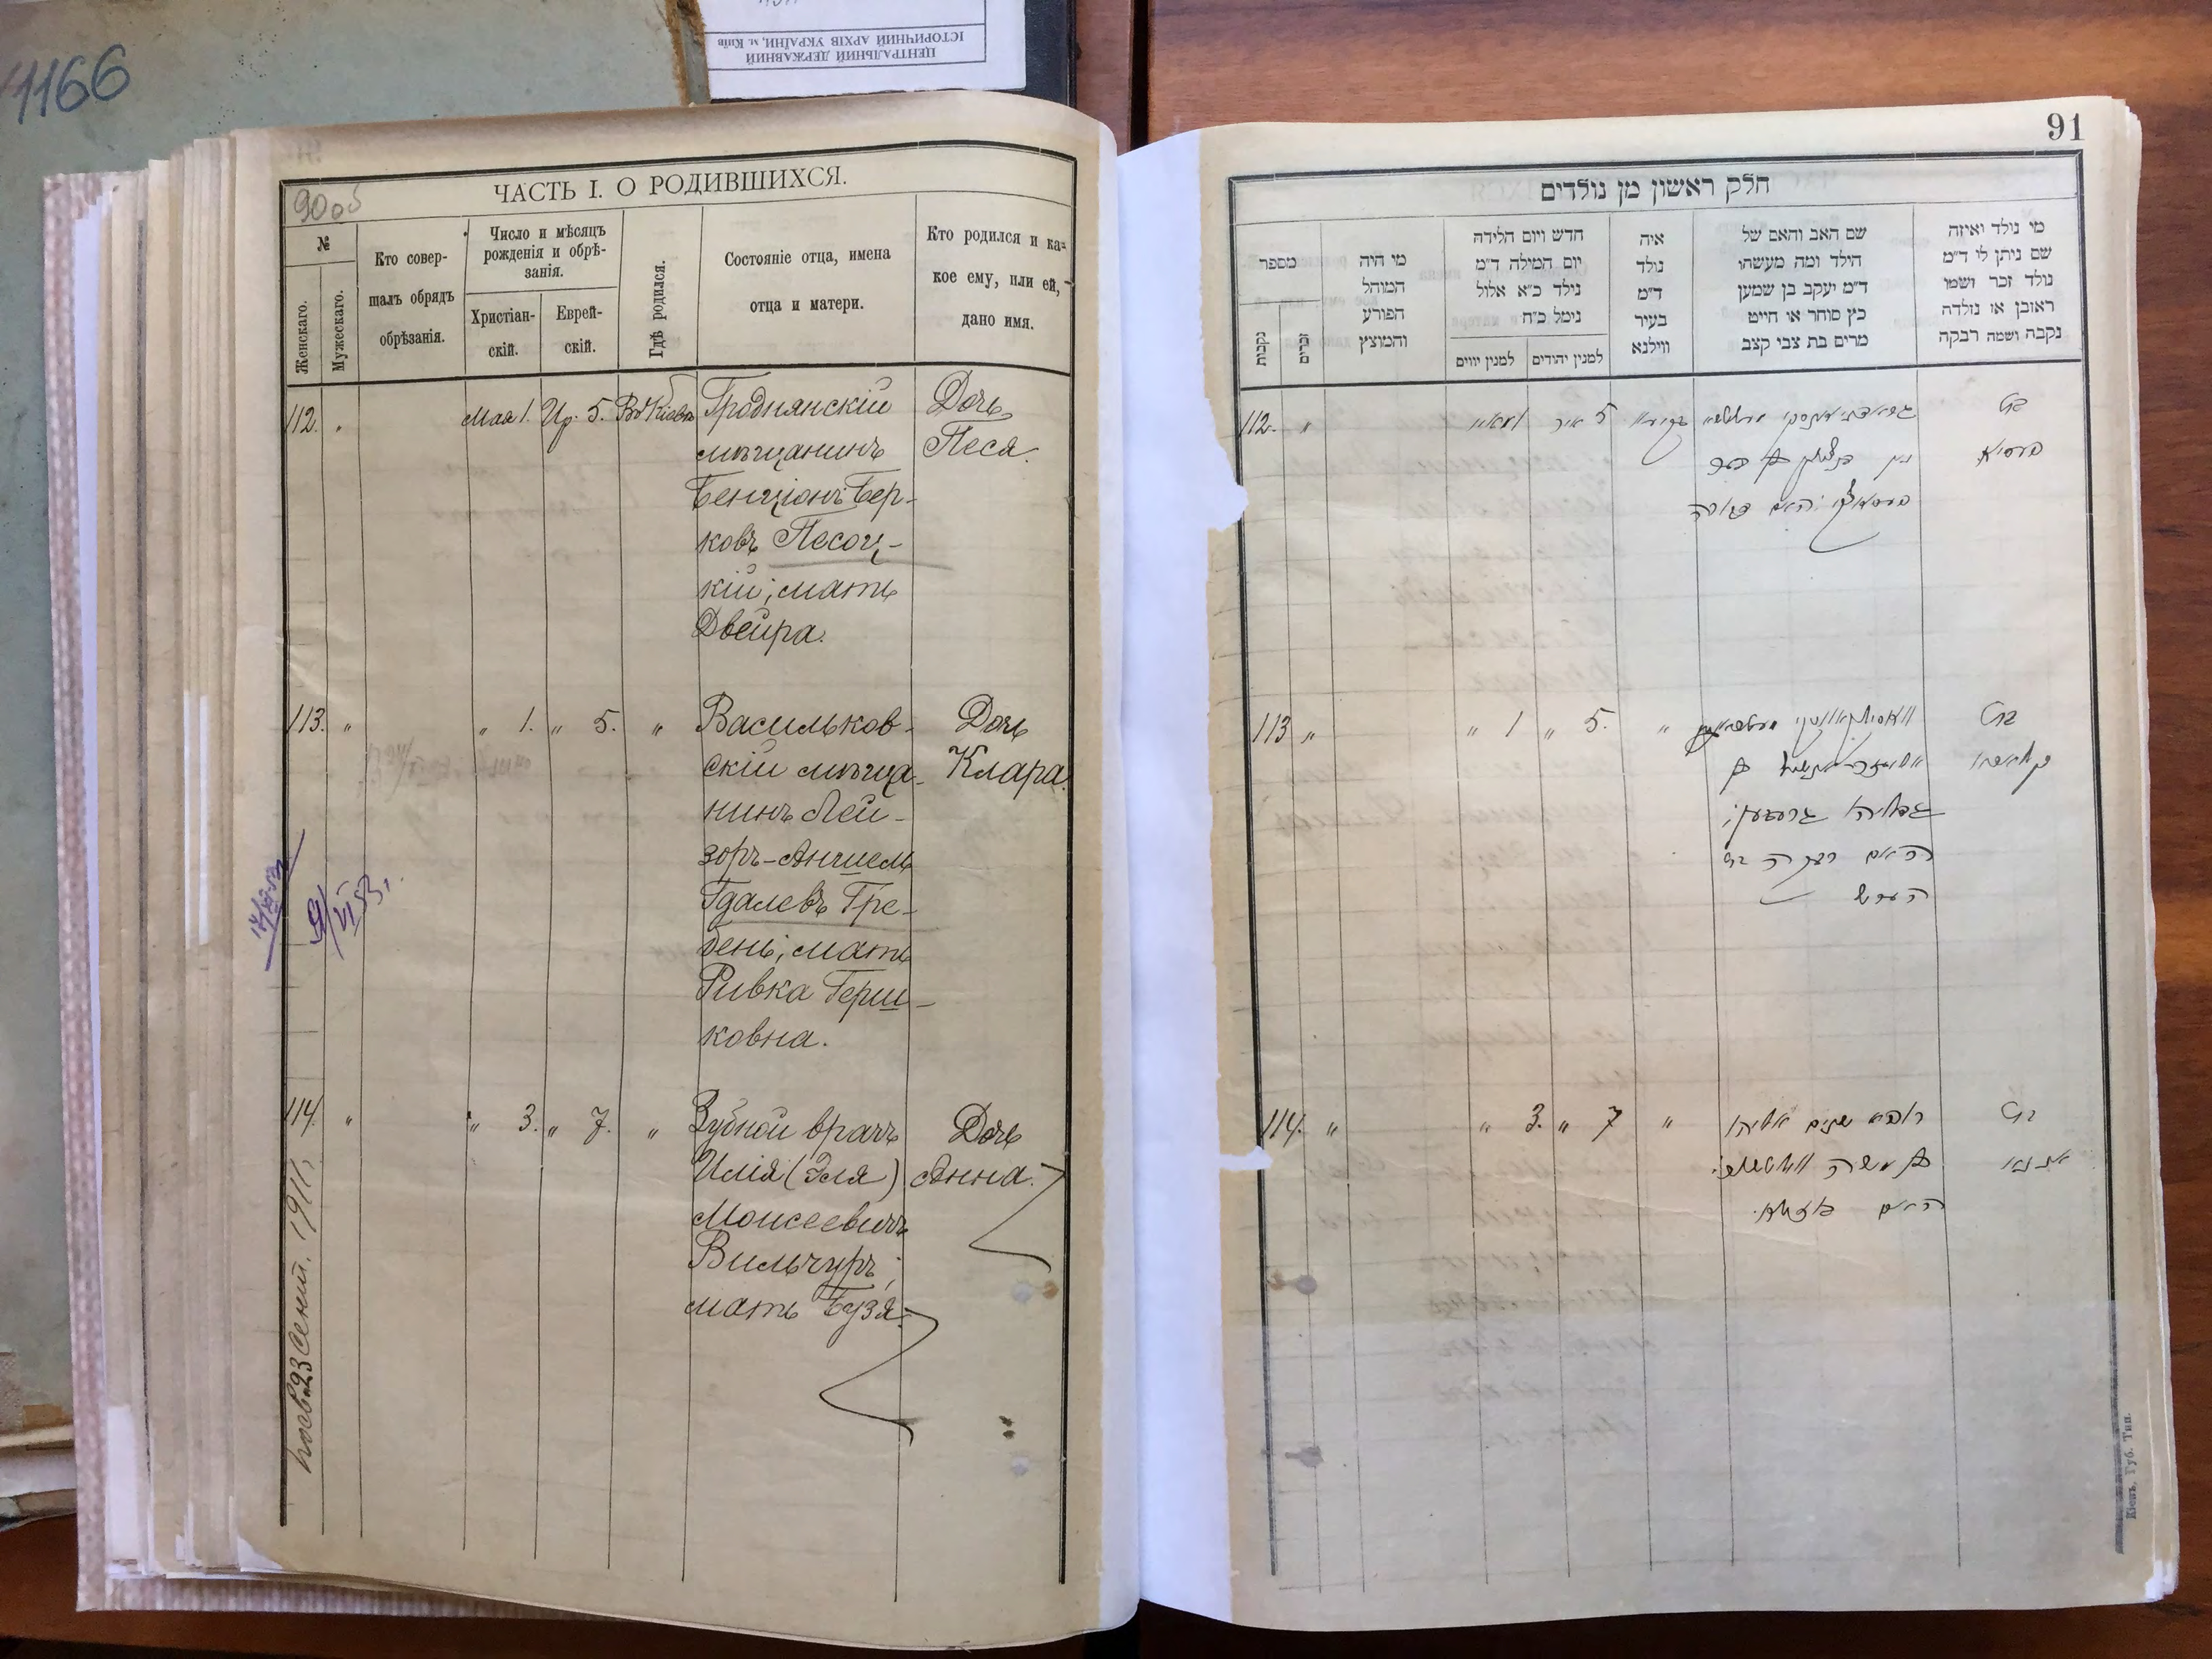 1166
ЦЕНТРАЛЬНИЙ ДЕРЖАВНИЙ
ІСТОРИЧНИЙ АРХІВ УКРАЇНИ, м. Київ
90 об
ЧАСТЬ I. О РОДИВШИХСЯ.
№
Женскаго.
Мужескаго.
Кто совер-
шалъ обрядъ
обрѣзанія.
Число и мѣсяцъ
рожденія и обрѣ-
занія.
Христіан-
скій.
Еврей-
скій.
Гдѣ родился.
Состояніе отца, имена
отца и матери.
Кто родился и ка-
кое ему, или ей,
дано имя.
112. „ Мая 1. Ир. 5. Въ Кіевѣ Гроднянскій Дочь
мѣщанинъ Песя.
Бенціонъ Бер-
ковъ Песоц-
кій; мать
Двейра.
113. „ „ 1. „ 5. „ Васильков- Дочь
скій мѣща- Клара.
нинъ Лей-
зоръ-Анчиель
Гдалевъ Гре-
бень; мать
Ривка Герш-
ковна.
9/VI 53 г.
114. „ „ 3. „ 7. „ Зубной врачъ Дочь
Илія (Эля) Анна.
Моисеевичъ
Вильчуръ;
мать Бузя.
23 Сентяб. 1911 г.
91
חלק ראשון מן נולדים
מספר
נקבות
זכרים
מי היה
המוהל
הפורע
והמוצץ
חדש ויום הלידה
יום המילה ד״מ
נילד כ״א אלול
נימל כ״ח
למנין יווים
למנין יהודים
איה
נולד
ד״מ
בעיר
ווילנא
שם האב והאם של
הילד ומה מעשהו
ד״מ יעקב בן שמען
כץ סוחר או חייט
מרים בת צבי קצב
מי נולד ואיזה
שם ניתן לי ד״מ
נולד זכר ושמו
ראובן או נולדה
נקבה ושמה רבקה
112. „ 5 אייר בת
פעסיא
113 „ „ 1 „ 5. „ בת
גדליהו
האם רבקה בת
הערש
114. „ „ 3. „ 7 „ רופא שנים אליהו בת
בן משה
האם
Кіевъ, Губ. Тип.